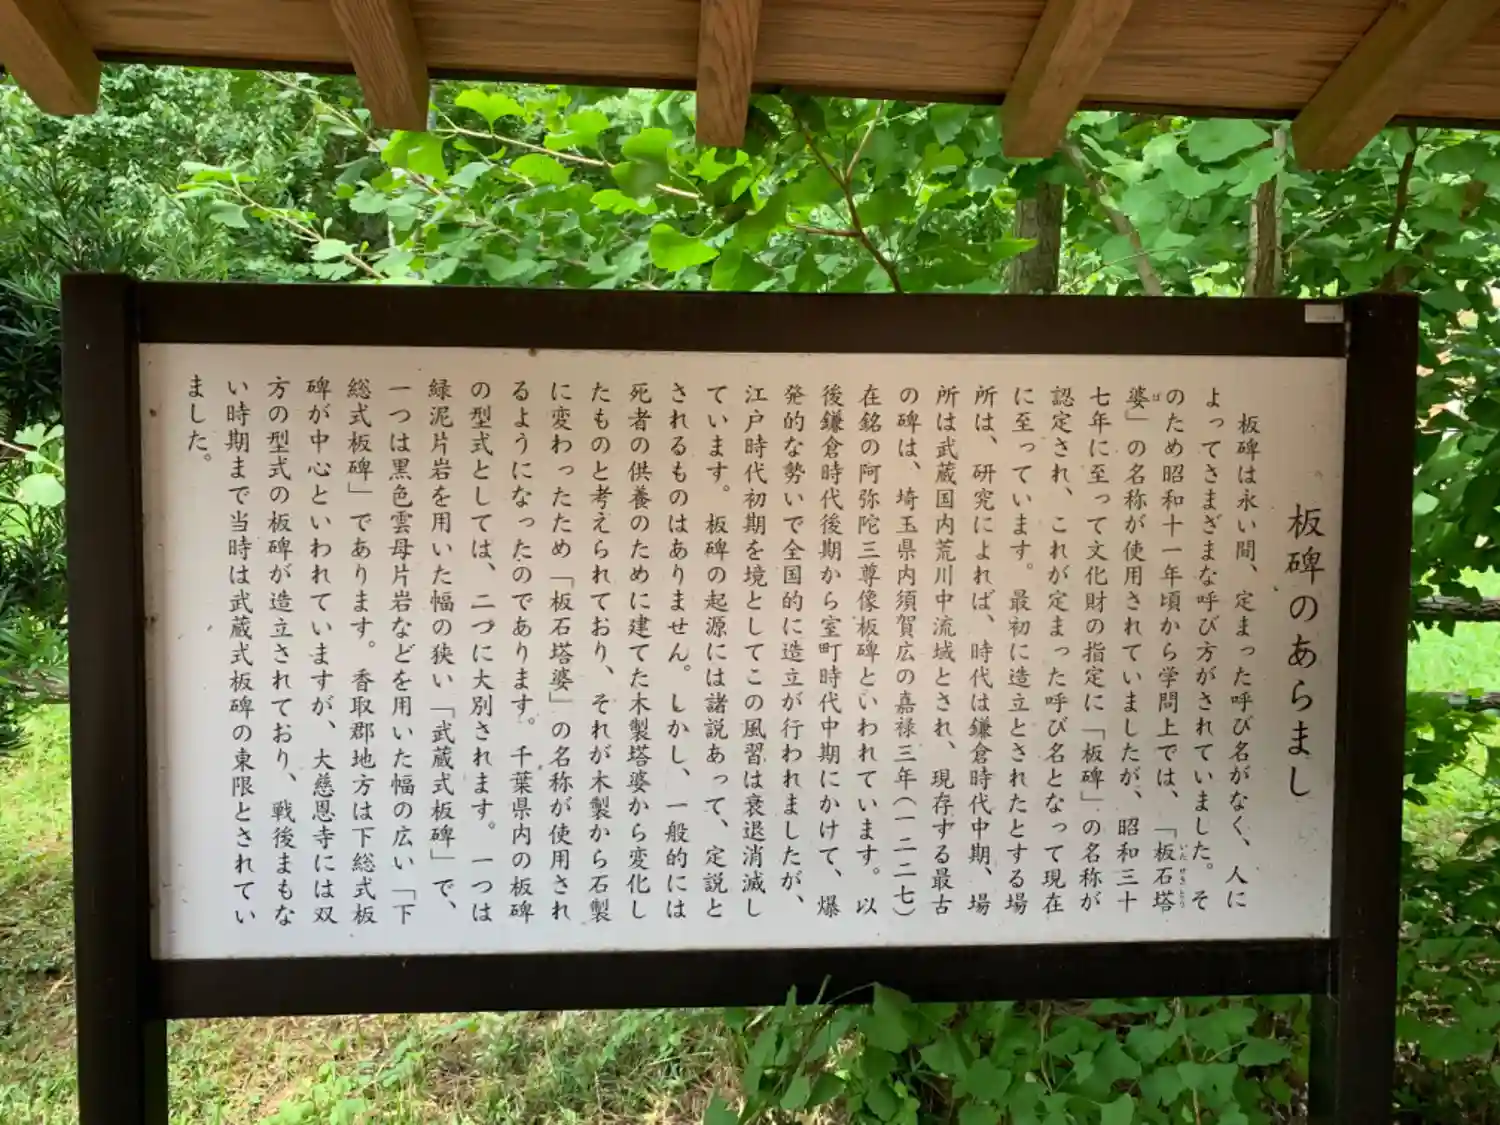 板碑のあらまし
板碑は永い間、定まった呼び名がなく、人に
よってさまざまな呼び方がされていました。そ
のため昭和十一年頃から学問上では、「板石塔
婆」の名称が使用されていましたが、昭和三十
七年に至って文化財の指定に「板碑」の名称が
認定され、これが定まった呼び名となって現在
に至っています。最初に造立とされたとする場
所は、研究によれば、時代は鎌倉時代中期、場
所は武蔵国内荒川中流域とされ、現存する最古
の碑は、埼玉県内須賀広の嘉禄三年(一二二七)
在銘の阿弥陀三尊像板碑といわれています。以
後鎌倉時代後期から室町時代中期にかけて、爆
発的な勢いで全国的に造立が行われましたが、
江戸時代初期を境としてこの風習は衰退消滅し
ています。板碑の起源には諸説あって、定説と
されるものはありません。しかし、一般的には
死者の供養のために建てた木製塔婆から変化し
たものと考えられており、それが木製から石製
に変わったため「板石塔婆」の名称が使用され
るようになったのであります。千葉県内の板碑
の型式としては、二つに大別されます。一つは
緑泥片岩を用いた幅の狭い「武蔵式板碑」で、
一つは黒色雲母片岩などを用いた幅の広い「下
総式板碑」であります。香取郡地方は下総式板
碑が中心といわれていますが、大慈恩寺には双
方の型式の板碑が造立されており、戦後まもな
い時期まで当時は武蔵式板碑の東限とされてい
ました。